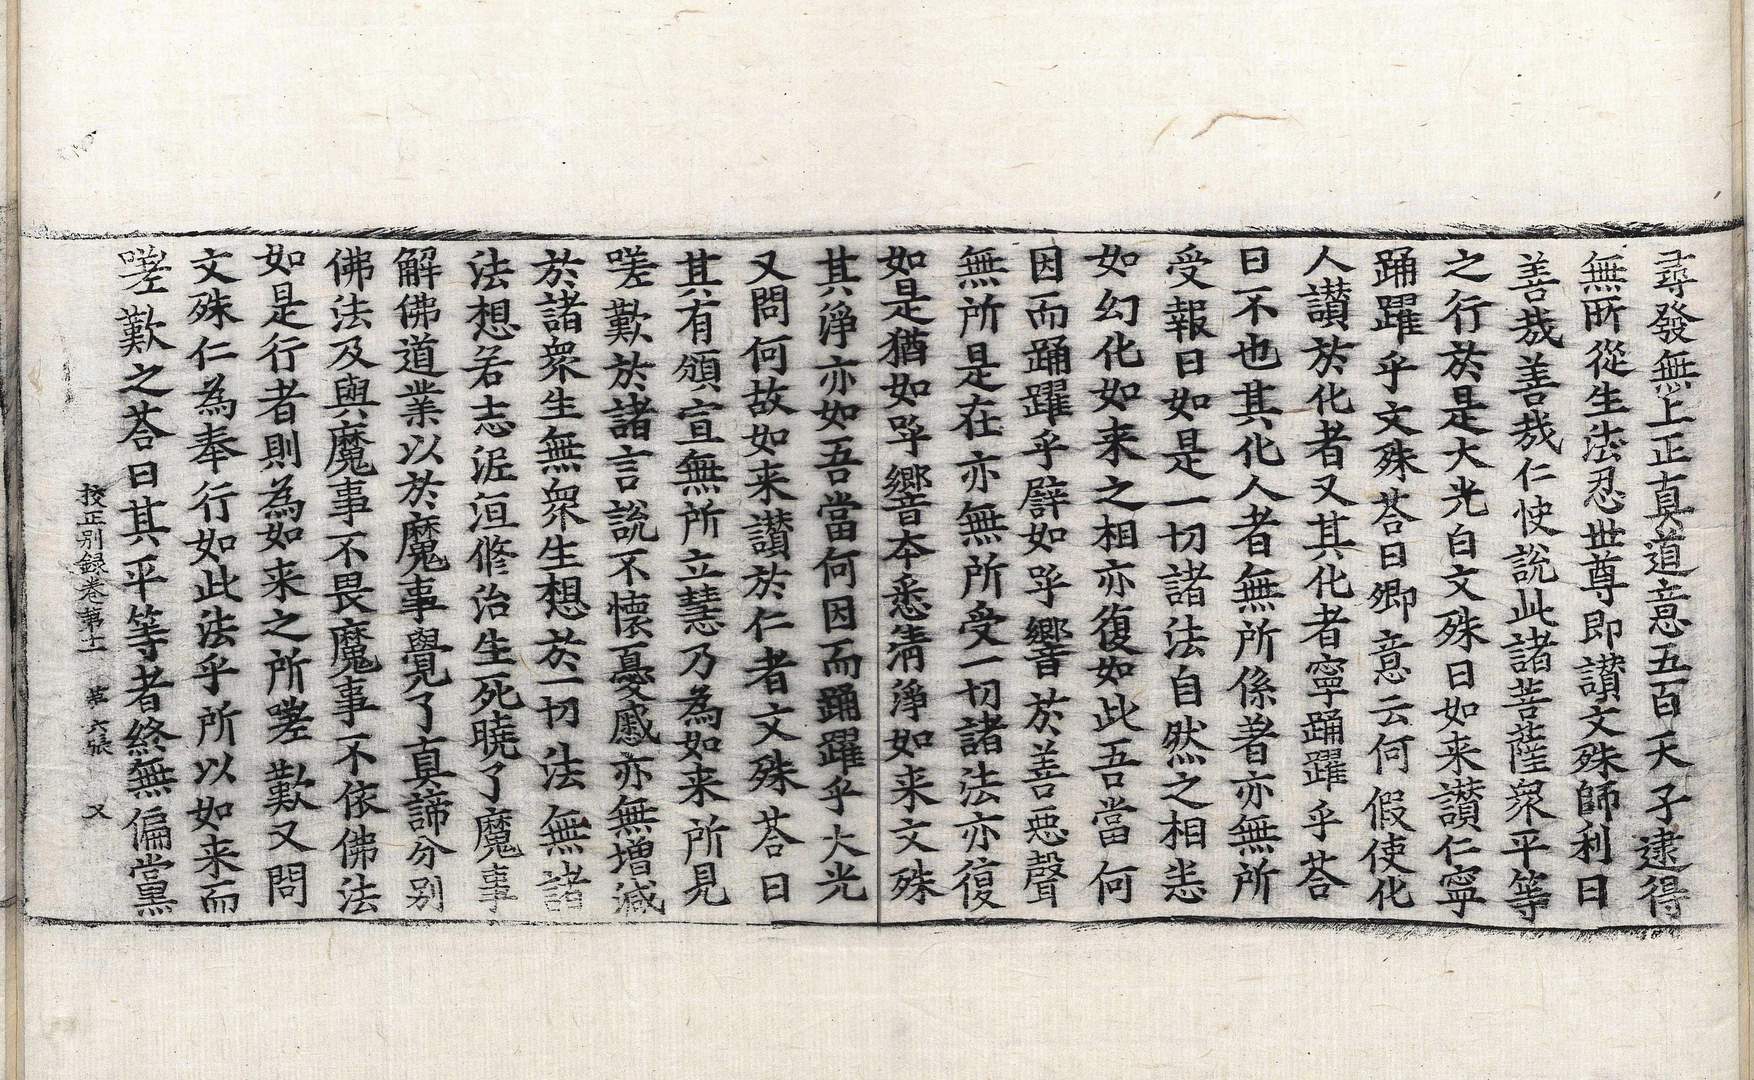 尋發無上正真道意五百天子逮得
無所從生法忍世尊即讃文殊師利曰
善哉善哉仁快說此諸菩薩衆平等
之行於是大光白文殊曰如来讃仁寧
踊躍乎文殊荅曰卿意云何假使化
人讃於化者又其化者寧踊躍乎荅
曰不也其化人者無所係著亦無所
受報曰如是一切諸法自然之相恙
如幻化如来之相亦復如此吾當何
因而踊躍乎譬如呼響音於善惡聲
無所是在亦無所受一切諸法亦復
如是猶如呼響本悉清淨如来文殊
其淨亦如吾當何因而踊躍乎大光
又問何故如来讃於仁者文殊荅曰
其有頒宣無所立慧乃為如来所見
嗟歎於諸言說不懷憂慼亦無增減
於諸衆生無衆生想於一切法無諸
法想若志泥洹脩治生死曉了魔事
解佛道業以於魔事覺了真諦分别
佛法及與魔事不畏魔事不依佛法
如是行者則為如来之所嗟歎又問
文殊仁為奉行如此法乎所以如来而
嗟歎之荅曰其平等者終無偏黨
校正别録卷第十一 第六張 又